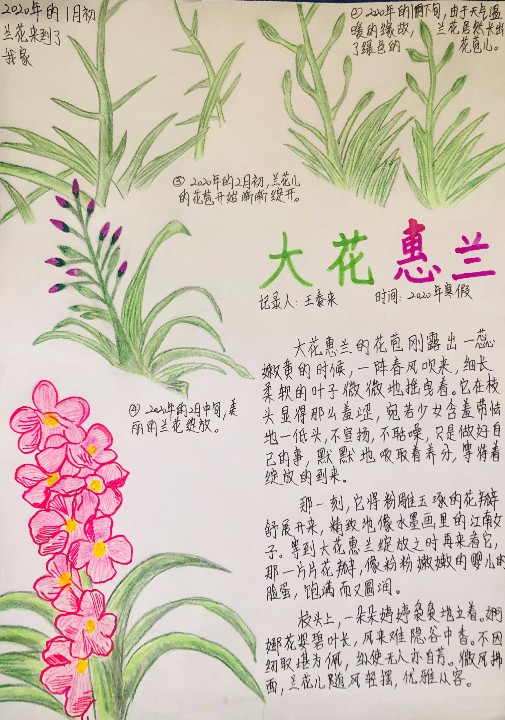 2020年的1月初
兰花来到了
我家
2020年的1月下旬,由于天气温
暖的缘故, 兰花居然长出
了绿色的 花苞儿。
③2020年的2月初,兰花儿
的花苞开始渐渐绽开。
大花惠兰
记录人:王泰来 时间:2020年寒假
④2020年的2月中旬,美
丽的兰花绽放。
大花惠兰的花苞刚露出一蕊
嫩黄的时候,一阵春风吹来,细长
柔软的叶子微微地摇曳着。它在枝
头显得那么羞涩,宛若少女含羞带怯
地一低头,不宣扬,不聒噪,只是做好自
己的事,默默地吸取着养分,等待着
绽放的到来。
那一刻,它将粉雕玉琢的花瓣
舒展开来,精致地像水墨画里的江南女
子。等到大花惠兰绽放之时再来看它,
那一片片花瓣,像粉粉嫩嫩的婴儿的
脸蛋,饱满而又圆润。
枝头上,一朵朵婷婷袅袅地立着。婀
娜花姿碧叶长,风来难隐谷中香。不因
纫取堪为佩,纵使无人亦自芳。微风拂
面,兰花儿随风轻摆,优雅从容。